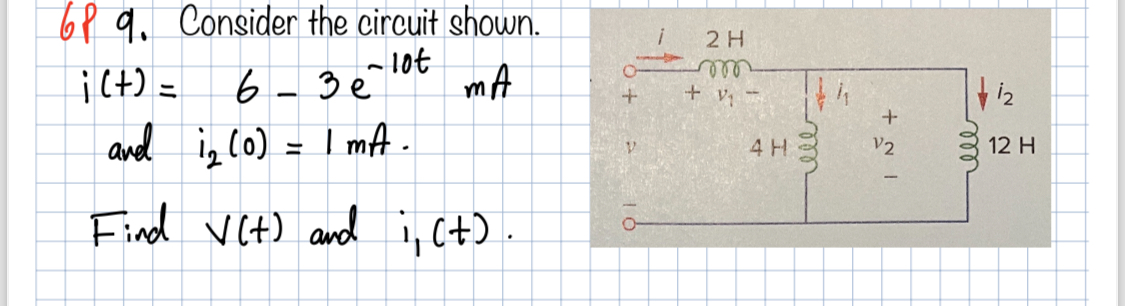 6P 9. Consider the circuit shown.
i(t) = 6 - 3e^{-10t} mA
and i₂(0) = 1 mA.
Find V(t) and i₁(t).
i 2 H
+ + v₁ - i₁ i₂
+
v 4 H v₂ 12 H
-
-